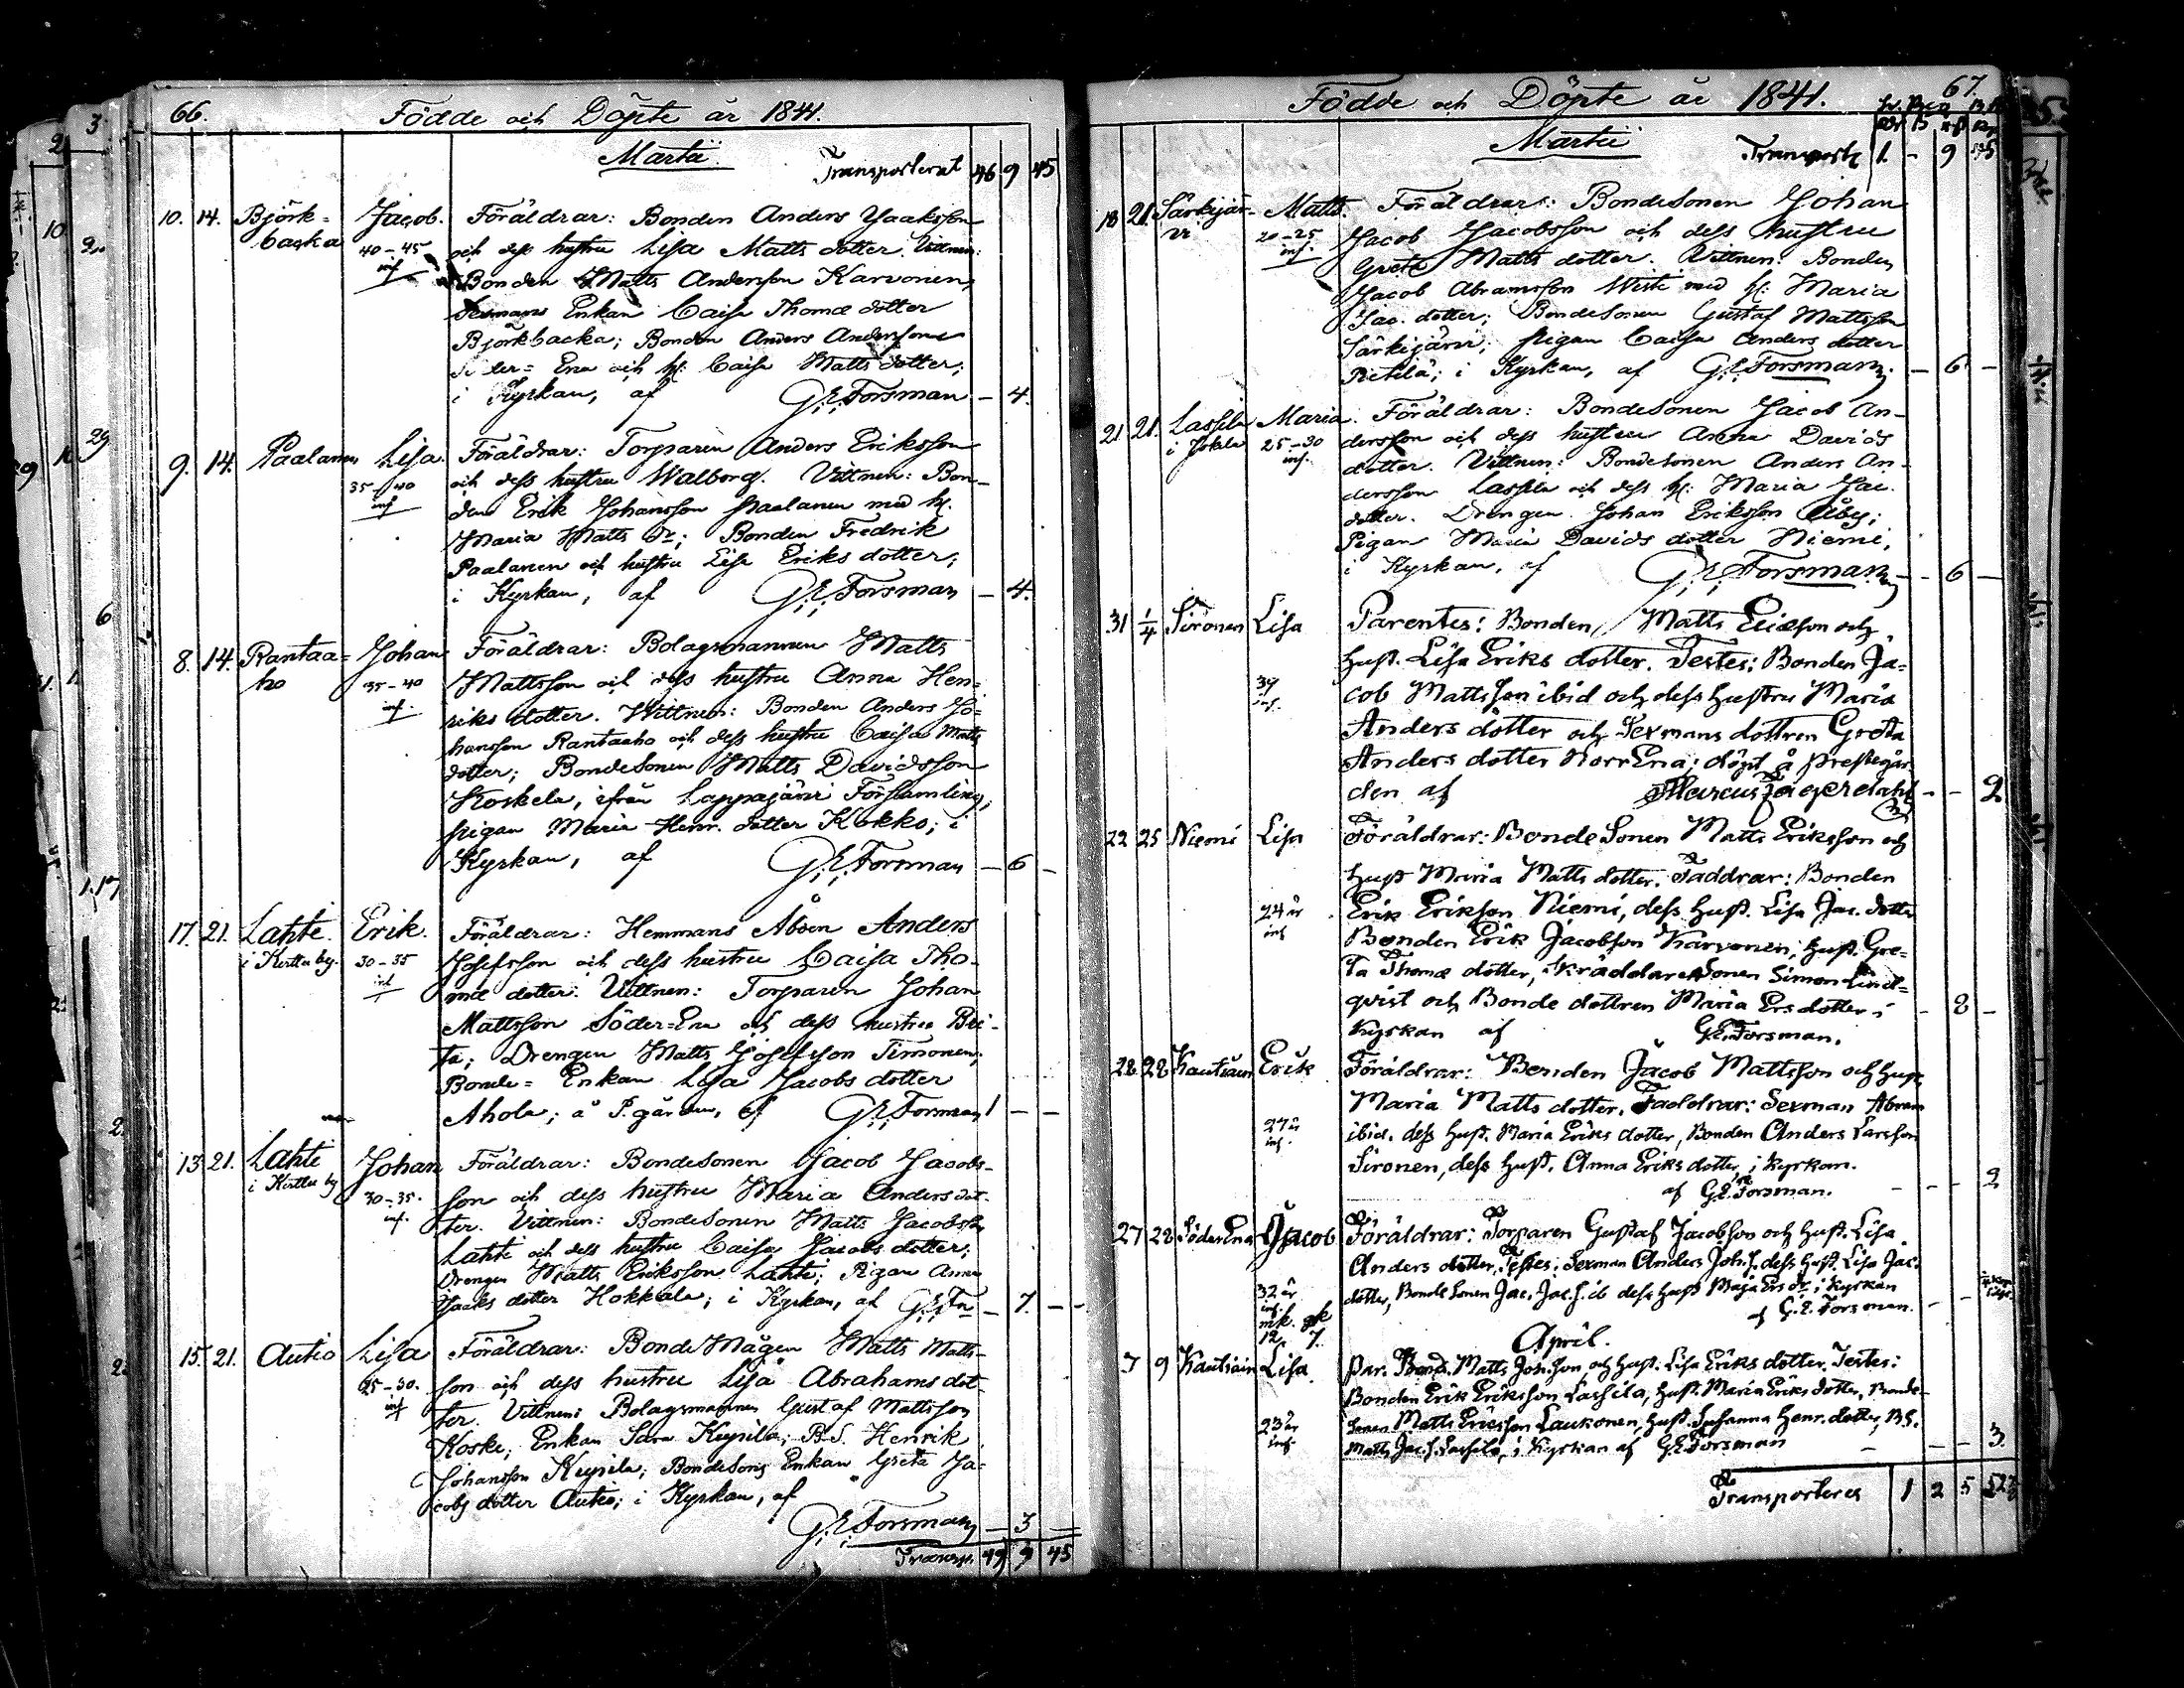 66. Födde och Döpte år 1841.
Martii Transporterat 46 9 45
10. 14. Björk= Jacob. Föräldrar: Bonden Anders Jaaksson
backa 40-45 och dess hustru Lisa Matts dotter. Vittnen:
inf Bonden Matts Andersson Karvonen,
Enkan Caisa Thomæ dotter
Björkbacka; Bonden Anders Andersson
Ena och h: Caisa Matts dotter;
i Kyrkan, af G:E: Forsman — 4.
9. 14. Paalanen Lisa. Föräldrar: Torparen Anders Eriksson
35-40 och dess hustru Walborg. Vittnen: Bon-
inf den Erik Johansson Paalanen med h:
Maria Matts dr; Bonden Fredrik
Paalanen och hustru Lisa Eriks dotter;
i Kyrkan, af G:E: Forsman — 4.
8. 14. Rantaa= Johan Föräldrar: Bolagsmannen Matts
ho 35-40 Mattsson och dess hustru Anna Hen-
inf. riks dotter. Wittnen: Bonden Anders Jo-
hansson Rantaaho och dess hustru Caisa Matts
dotter; Bondesonen Matts Davidsson
Koskela, ifrån Lappajärvi Församling,
pigan Maria Henr. dotter Kokko; i
Kyrkan, af G:E: Forsman — 6 —
17. 21. Lahti Erik. Föräldrar: Hemmans Åboen Anders
i Kerttu by. 30-35 Josefsson och dess hustru Caisa Tho-
inf mæ dotter. Vittnen: Torparen Johan
Mattsson Söder=Ena och dess hustru Bri-
ta; Drengen Matts Josefsson Timonen;
Bonde= Enkan Lisa Jacobs dotter
Ahola; å P.gården, af G:E: Forsman 1 — —
13 21. Lahti Johan Föräldrar: Bondesonen Jacob Jacobs-
i Kerttu by 30-35. son och dess hustru Maria Anders dot-
inf. ter. Vittnen: Bondesonen Matts Jacobsson
Lahti och dess hustru Caisa Jacobs dotter;
Drengen Matts Eriksson Lahti; Pigan Anna
Jaaks dotter Hokkala; i Kyrkan, af G:E: Fn — 7. — —
15. 21. Autio Lisa Föräldrar: BondeMågen Matts Matts-
25-30. son och dess hustru Lisa Abrahams dot-
inf ter. Vittnen: Bolagsmannen Gustaf Mattsson
Koski; Enkan Sara Kujsila; B.S. Henrik
Johansson Kujsila; Bondesons Enkan Greta Ja-
cobs dotter Autio; i Kyrkan, af
G:E: Forsman — 3 —
Transp. 49 9 45
67.
Födde och Döpte år 1841.
Martii Transport 1 — 9
18 21. Särkijär- Matts. Föräldrar: Bondesonen Johan
vi 20-25 Jacob Jacobsson och dess hustru
inf. Greta Matts dotter. Vittnen: Bonden
Jacob Abramsson Wisti med h: Maria
Jac. dotter; Bondesonen Gustaf Mattsson
Särkijärvi; pigan Caisa Anders dotter
Pietilä; i Kyrkan, af G:E: Forsman. — 6 —
21 21. Lassila Maria. Föräldrar: Bondesonen Jacob An-
i Jokela 25-30 dersson och dess hustru Anna Davids
inf. dotter. Vittnen: Bondesonen Anders An-
dersson Lassila och dess h: Maria Jac.
dotter. Drengen Johan Eriksson Åby;
Pigan Maria Davids dotter Niemi,
i Kyrkan, af G:E: Forsman — 6 —
31 1/4 Sironen Lisa Parentes: Bonden Matts Ericsson och
Hust. Lisa Eriks dotter. Testes: Bonden Ja=
39 cob Mattsson ibid och dess Hustru Maria
inf. Anders dotter och Sexmans dottren Greta
Anders dotter NorrEna; döpt å prestegår
den af Marcus Fagerdahl — — 2
22 25 Niemi Lisa Föräldrar: Bonde Sonen Matts Eriksson och
Hust Maria Matts dotter. Faddrar: Bonden
24 år Erik Erikson Niemi, dess Hust. Lisa Jac. dotter
inf Bonden Erik Jacobsson Karvonen, Hust. Gre-
ta Thomæ dotter, Skräddare Sonen Simon Lind=
qvist och Bonde dottren Maria Ers dotter i — 2 —
Kyrkan af G.E. Forsman.
28 28 Kautiain Erik Föräldrar: Bonden Jacob Mattsson och Hust.
Maria Matts dotter. Faddrar: Sexman Abram
27 år ibid. dess Hust. Maria Eriks dotter, Bonden Anders Larsson
inf. Sironen, dess Hust. Anna Eriks dotter, i Kyrkan.
af G.E. Forsman. — — 2
27 28 SöderEna Jacob Föräldrar: Torparen Gustaf Jacobson och Hust. Lisa
Anders dotter, Testes: Sexman Anders Joh.s. dess Hust. Lisa Jac.
32 år dotter, Bonde Sonen Jac. Jac.s. ib dess Hust Maja Ers dr i Kyrkan
inf. af G.E. Forsman.
12 7. April.
7 9 Kautiain Lisa Par. Bond. Matts Joh.son och Hust. Lisa Eriks dotter. Testes:
Bonden Erik Eriksson Lassila, Hust. Maria Eriks dotter, Bonde-
23 år Sonen Matts Ericsson Laukonen, Hust. Susanna Henr. dotter, B.S.
inf. Matts Jac.s. Lassila, i Kyrkan af G.E. Forsman — — 3.
Transporteres 1 2 5